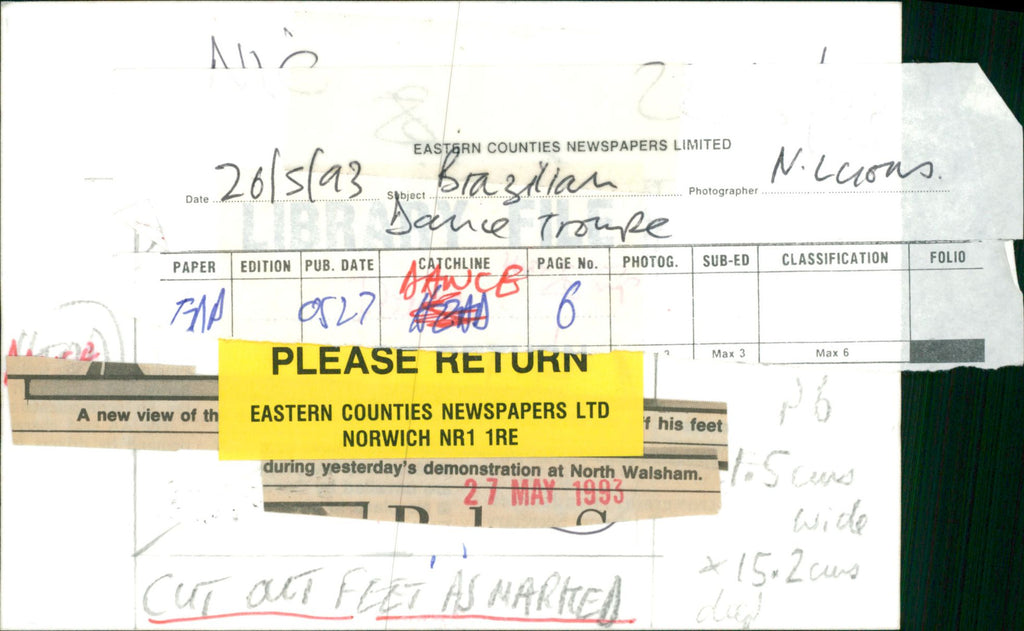 EASTERN COUNTIES NEWSPAPERS LIMITED
Date 26/5/93 Subject Brazilian Photographer N. Lyons.
Dance Troupe
LIBRARY FILE
PAPER EDITION PUB. DATE CATCHLINE PAGE No. PHOTOG. SUB-ED CLASSIFICATION FOLIO
DANCE
0527 6
Max 3 Max 6
PLEASE RETURN
EASTERN COUNTIES NEWSPAPERS LTD
NORWICH NR1 1RE
A new view of th
f his feet
during yesterday's demonstration at North Walsham.
27 MAY 1993
1.5 cms
wide
x 15.2 cms
CUT OUT FEET AS MARKED